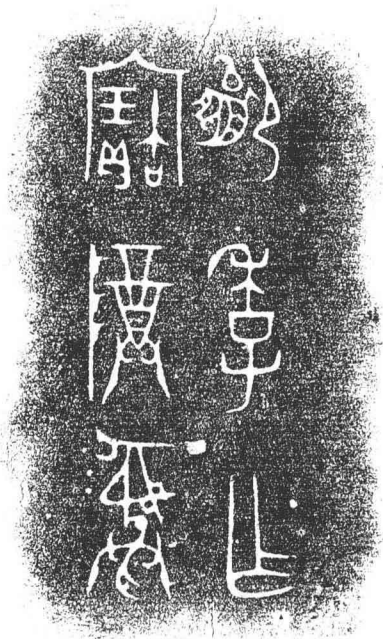 嬴季乍
寶尊彝